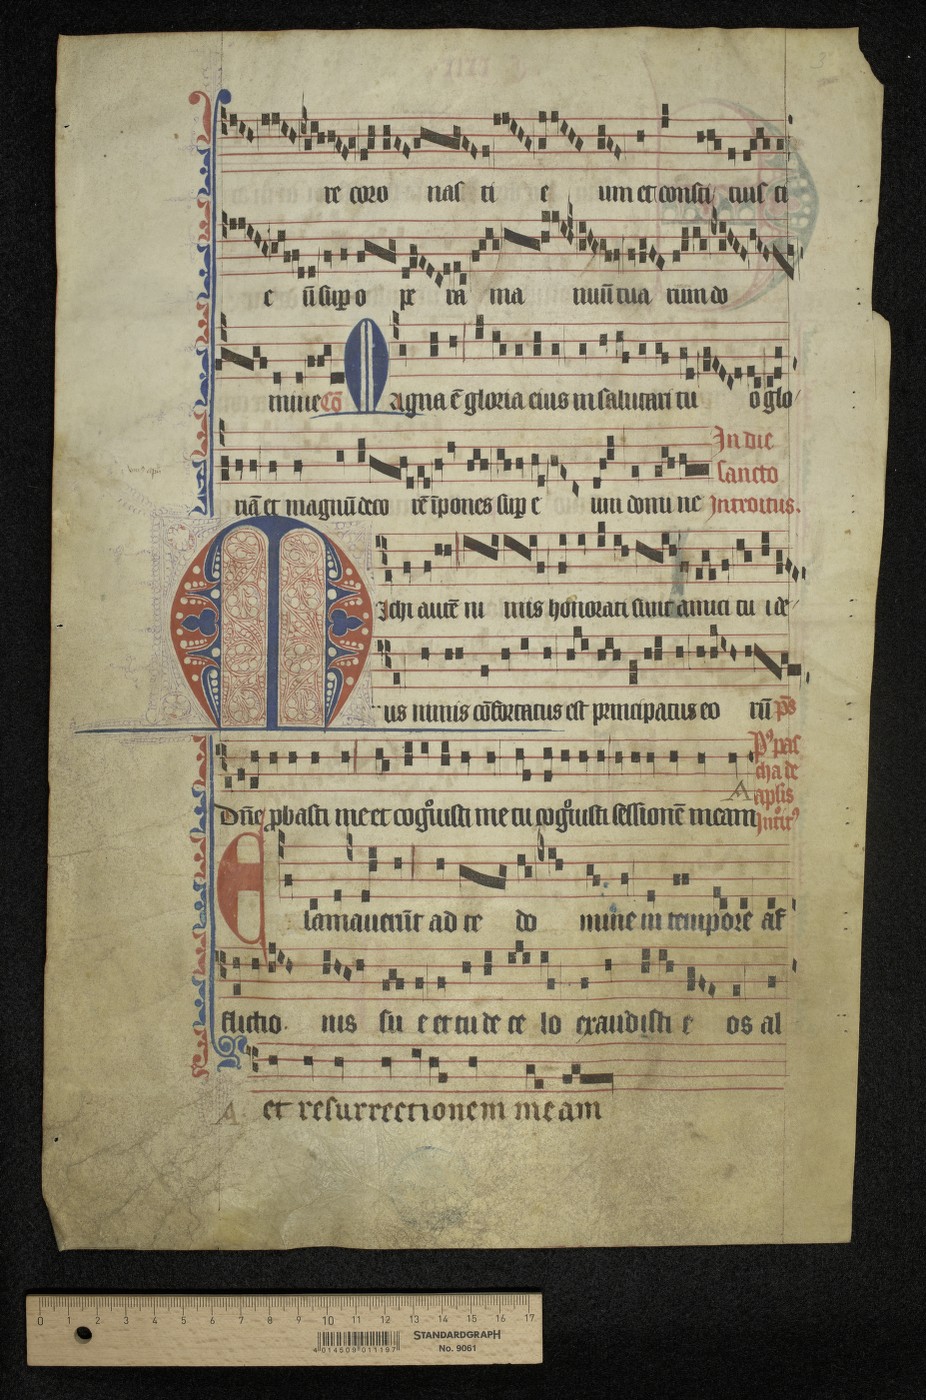 re coro nas ti e um et consti tuis ti
e ū sup̱ o pe ra ma nuū tua rum do
mine Cō Magna ē gloria eius in salutari tu o glo
riā et magnū deco rē īpones sup̱ e um domi ne
In die
sancto
Introitus.
Michi autē ni mis honorati sunt amici tu i de
us nimis cōfortatus est principatus eo rū p̄s
Dn̄e p̱basti me et cognouisti me tu cognouisti sessionē meam
Pꝰ pas
cha de
A aplis
Introitꝰ
Clamauerūt ad te do mine in tempore af
flictio nis su e et tu de ce lo exaudisti e os al
A et resurrectionem meam
0 1 2 3 4 5 6 7 8 9 10 11 12 13 14 15 16 17
4 014509 011197
STANDARDGRAPH
No. 9061